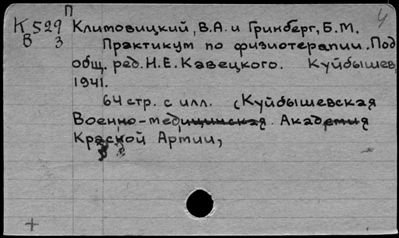 П
К 529 Климовицкий, В.А. и Гринберг, Б.М.
В 3 Практикум по физиотерапии. Под
общ. ред. Н.Е. Кавецкого. Куйбышев
1941.
64 стр. с илл. (Куйбышевская
Военно-медицинская Академия
Красной Армии,